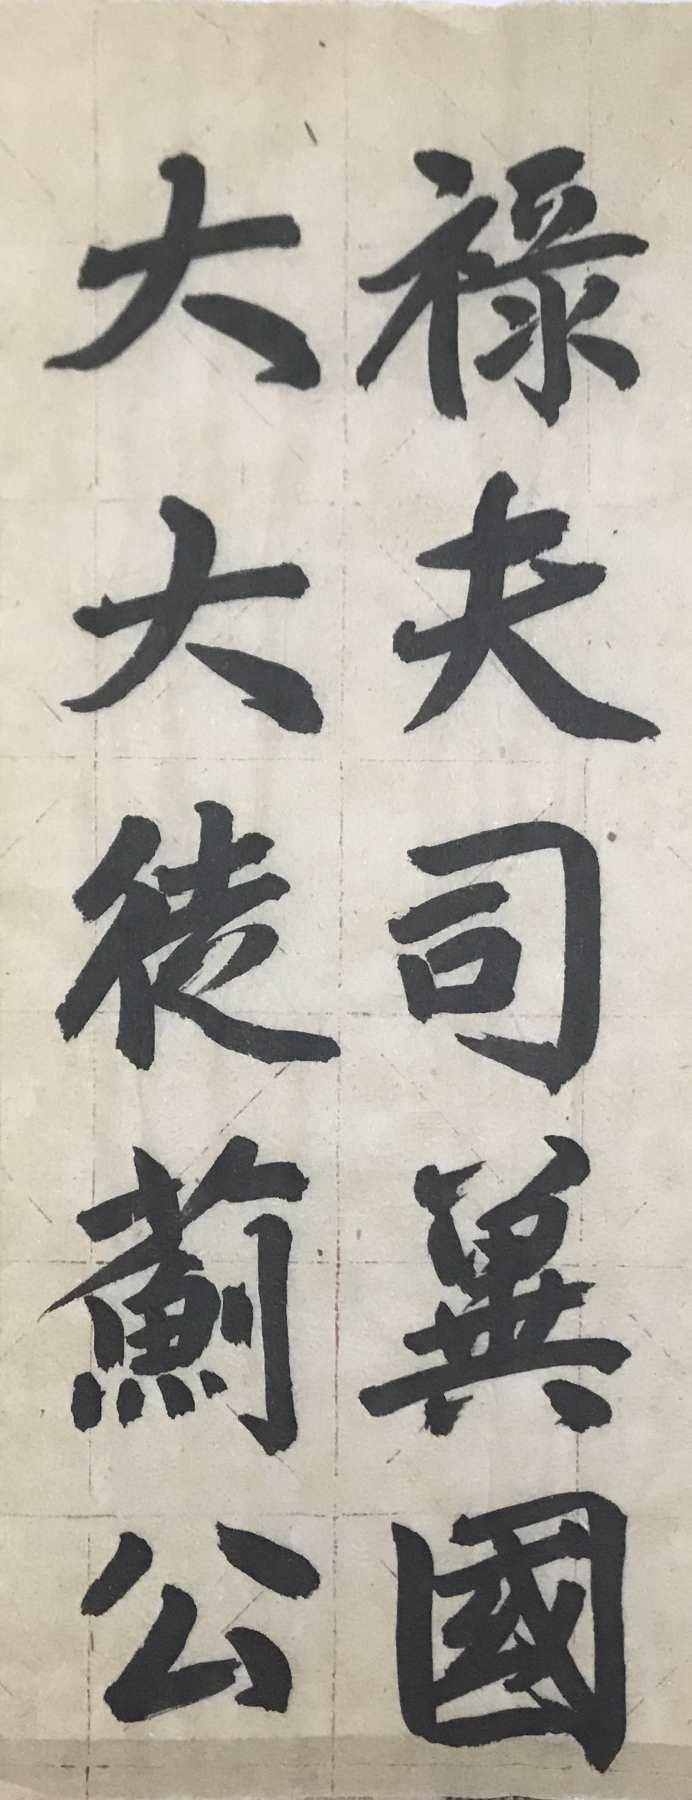 祿大
夫大
司徒
冀薊
國公